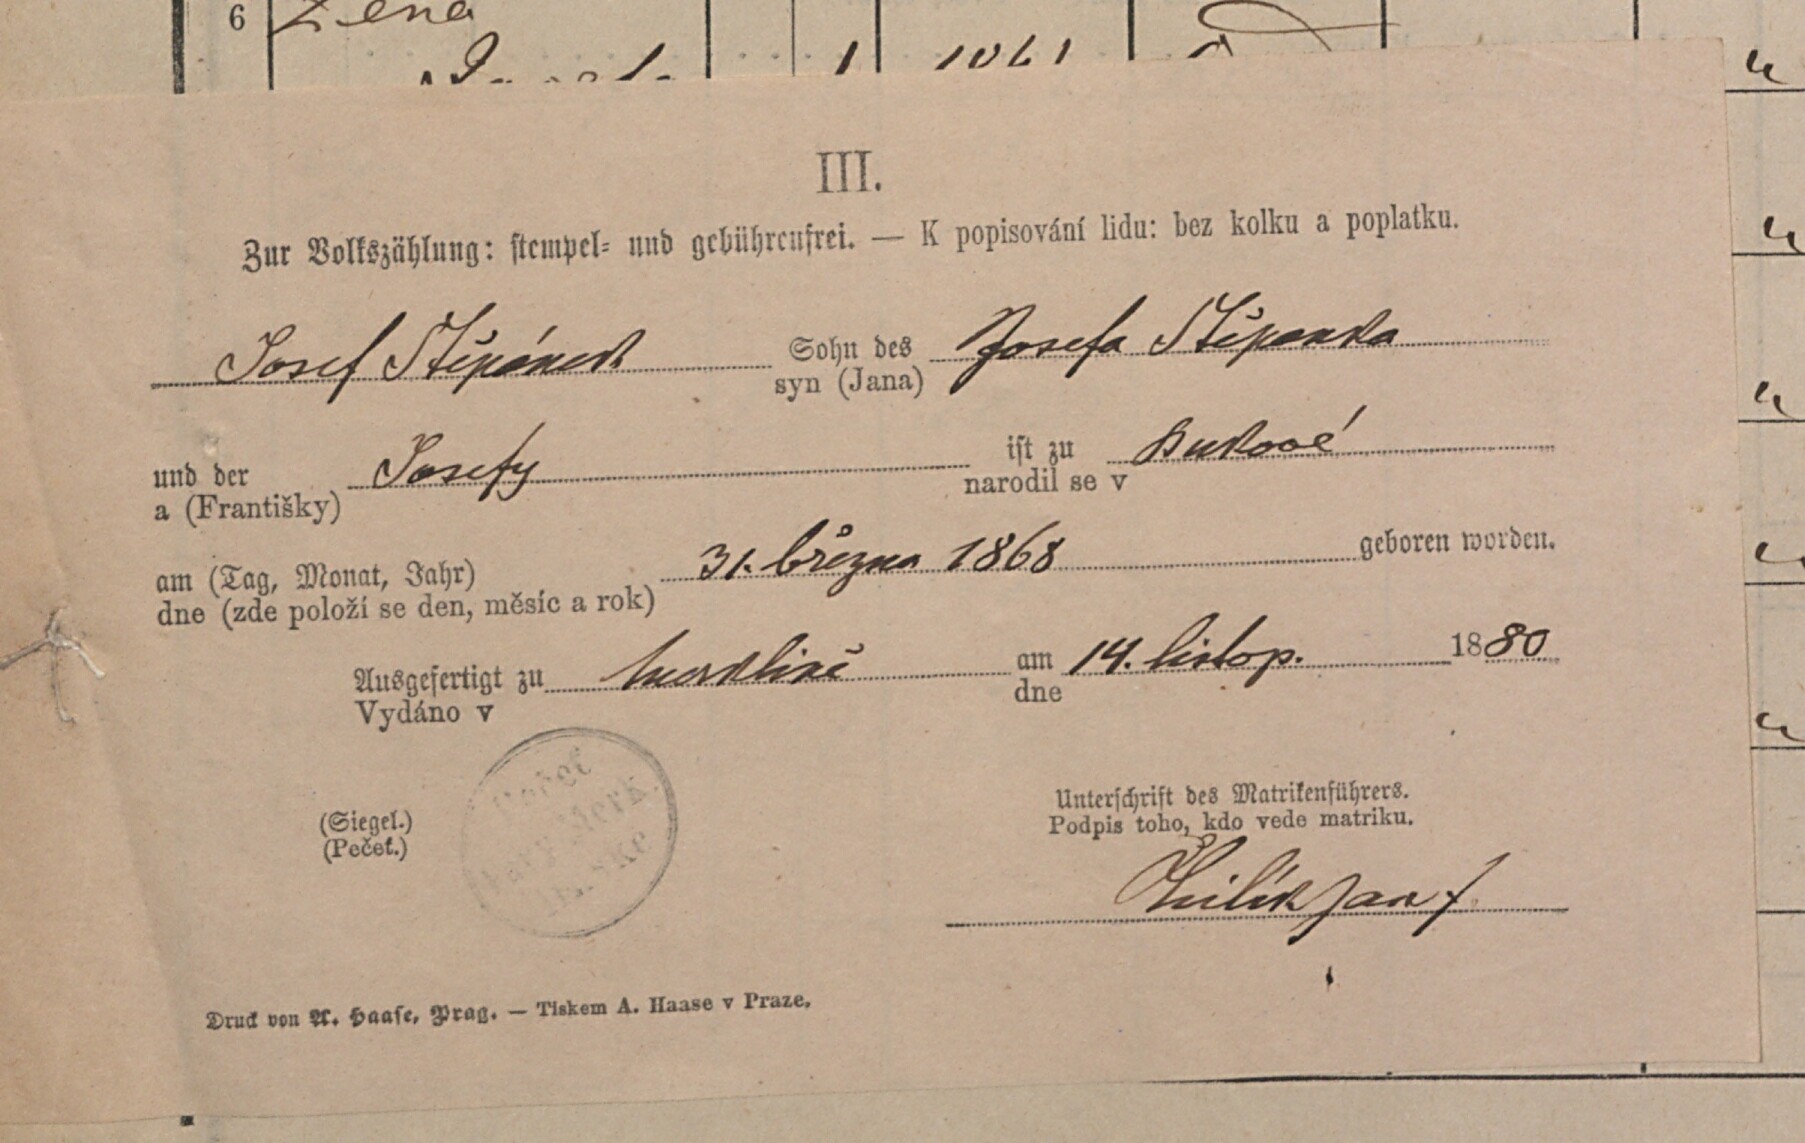 6 Žena
1 1861
III.
Zur Volkszählung: stempel- und gebührenfrei. — K popisování lidu: bez kolku a poplatku.
Josef Štěpánek Sohn des Josefa Štěpanka
syn (Jana)
und der Josefy ist zu Bukové
a (Františky) narodil se v
am (Tag, Monat, Jahr) 31. března 1868 geboren worden.
dne (zde položí se den, měsíc a rok)
Ausgefertigt zu Merklíně am 14. listop. 1880
Vydáno v dne
(Siegel.)
(Pečeť.)
Pečeť
Fary Merk
linské
Unterschrift des Matrikenführers.
Podpis toho, kdo vede matriku.
Jan
Druck von A. Haase, Prag. — Tiskem A. Haase v Praze.